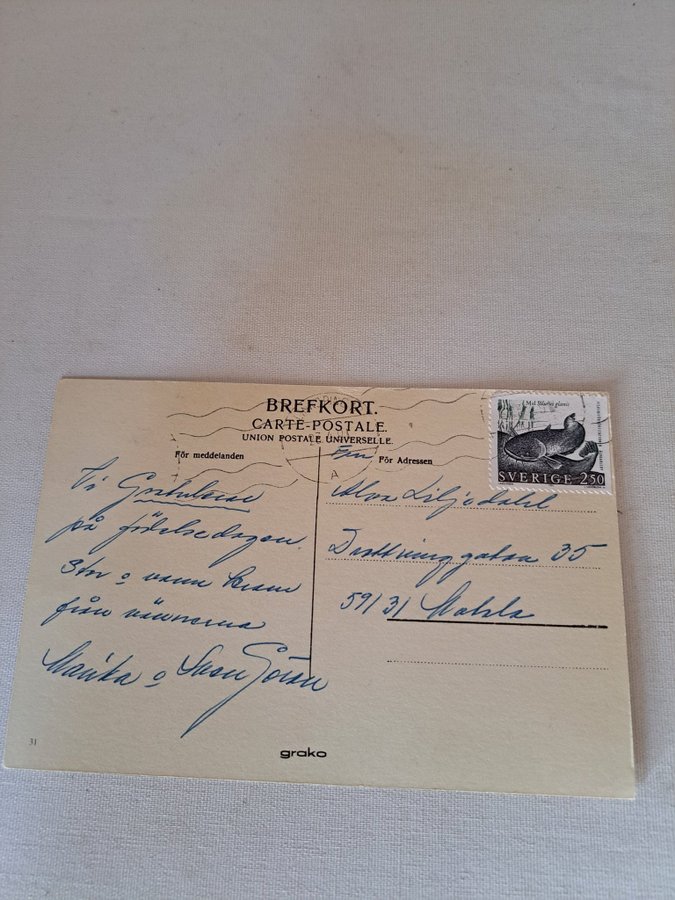 BREFKORT.
CARTE-POSTALE.
UNION POSTALE UNIVERSELLE.
För meddelanden
För Adressen
Mal Silurus glanis
SVERIGE 250
Vi Gratulerar
på födelsedagen.
Stor o varm kram
från vännerna
Marika o Sven Göran
Fru
Alva Liljedahl
Drottninggatan 35
59131 Motala
31
grako